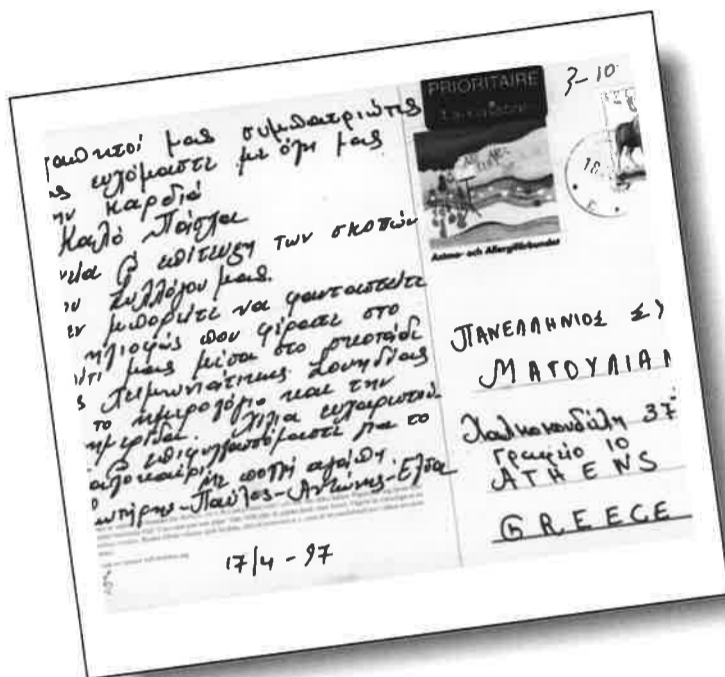 γαπητοί μας συμπατριώτες
ας ευχόμαστε με όλη μας
ην καρδιά
Καλό Πάσχα
επίτευξη των σκοπών
ου Συλλόγου μας.
εν μπορείτε να φανταστείτε
ηλιοφώς που φέρατε στο
πίτι μας μέσα στο σκοτάδι
ς χειμωνιάτικης Σουηδίας
το ημερολόγιο και την
ημερίδα. Χίλια ευχαριστώ
επιφυλασσόμαστε για το
αλοκαίρι.
Με πολλή αγάπη
ωτήρης-Παύλος-Αντώνης-Έλσα
17/4-97
PRIORITAIRE
1:a-class brev
Astma- och Allergiförbundet
3-10
ΠΑΝΕΛΛΗΝΙΟΣ ΣΥ
ΜΑΓΟΥΛΙΑΝ
Χαλκοκονδύλη 37
Γραφείο 10
ATHENS
GREECE